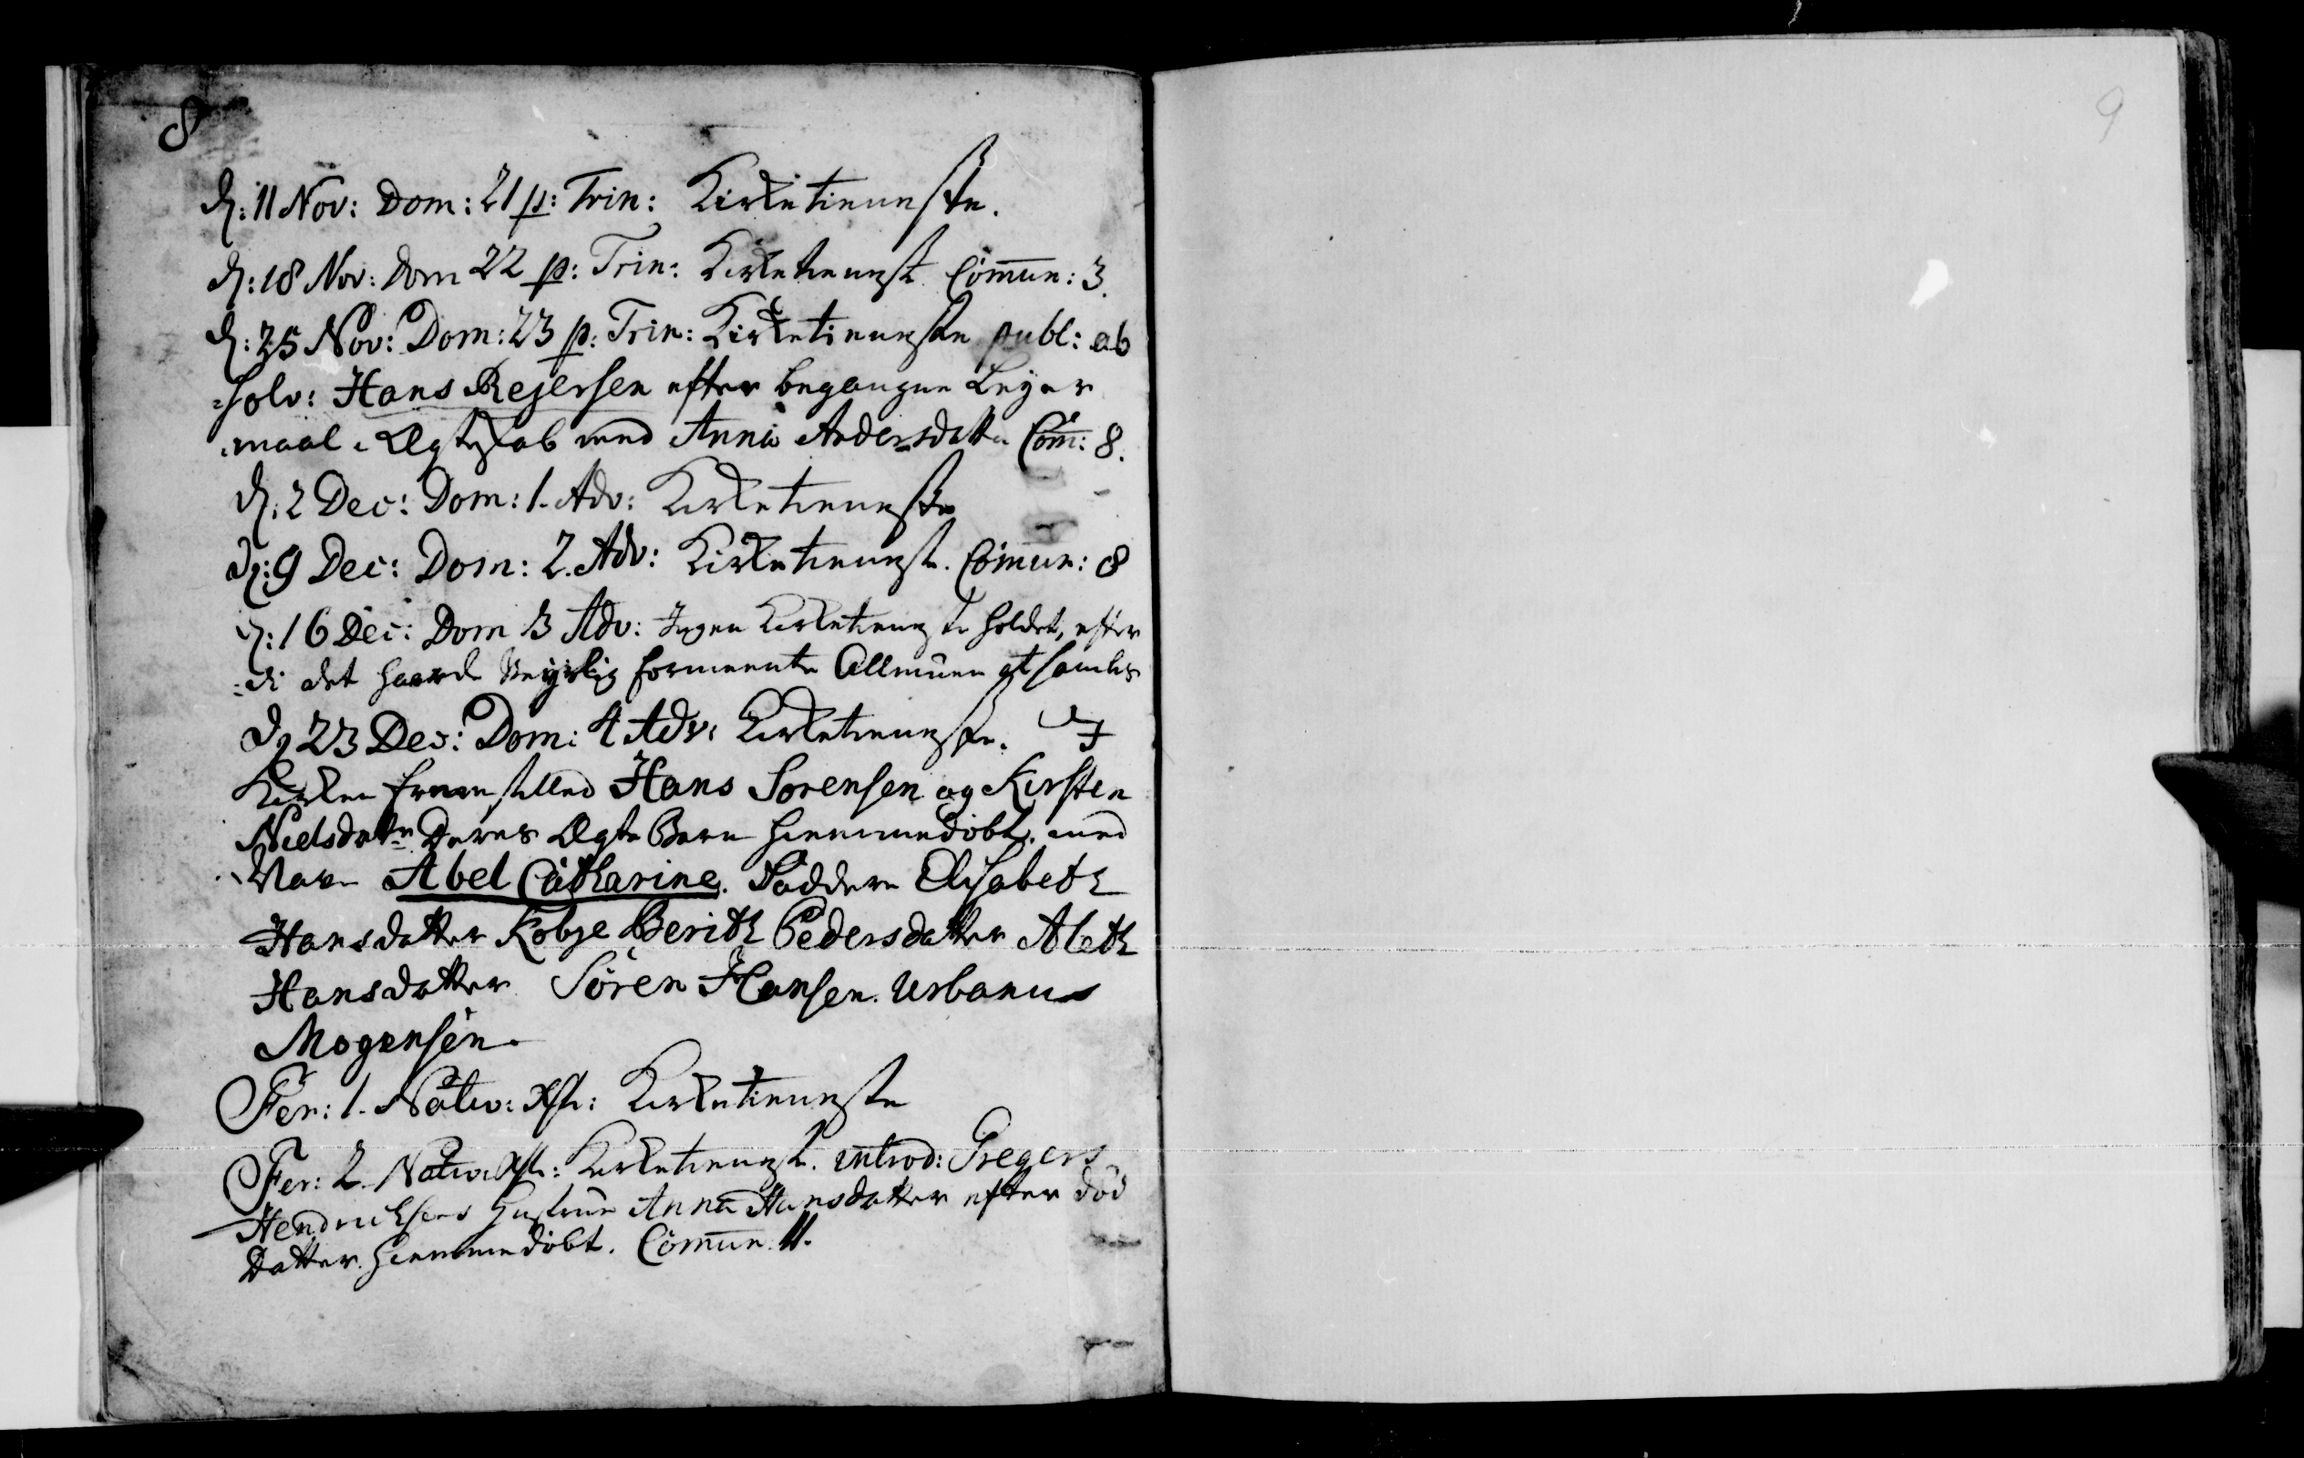 8
9
d: 11 Nov: Dom: 21 p: Trin: Kirketienneste.
d: 18 Nov: Dom 22 p: Trin: Kirketienneste Com̄un: 3.
d: 25 Nov: Dom: 23 p: Trin: Kirketienneste publ: ab
=solv: Hans Rejersen efter begangne Leyer
=maal i Ægteskab med Anna Andersdatter Com̄: 8.
d: 2 Dec: Dom: 1. Adv: Kirketienneste
d: 9 Dec: Dom: 2. Adv: Kirketienneste. Com̄un: 8
d: 16 Dec: Dom 3 Adv: Ingen Kirketienneste holdet, efter
=di det haarde Veyrlig formeente Allmuen at samles
d 23 Dec: Dom: 4 Adv: Kirketienneste. I
Kirken fremstilled Hans Sørensen og Kirsten
Nielsdatter Deres Ægte Barn hiemmedøbt, med
Navn Abel Catharine. Faddere Elisabeth
Hansdatter Kobye Berith Pedersdatter Aleth
Hansdatter Søren Hansen. Urbanus
Mogensen.
Fer: 1. Nativ: Xsti: Kirketienneste
Fer: 2. Nativ: Xsti: Kirketienneste. introd: Gregers
Hendrichsens Hustrue Anna Hansdatter efter død
Datter hiemmedøbt. Com̄un 11.